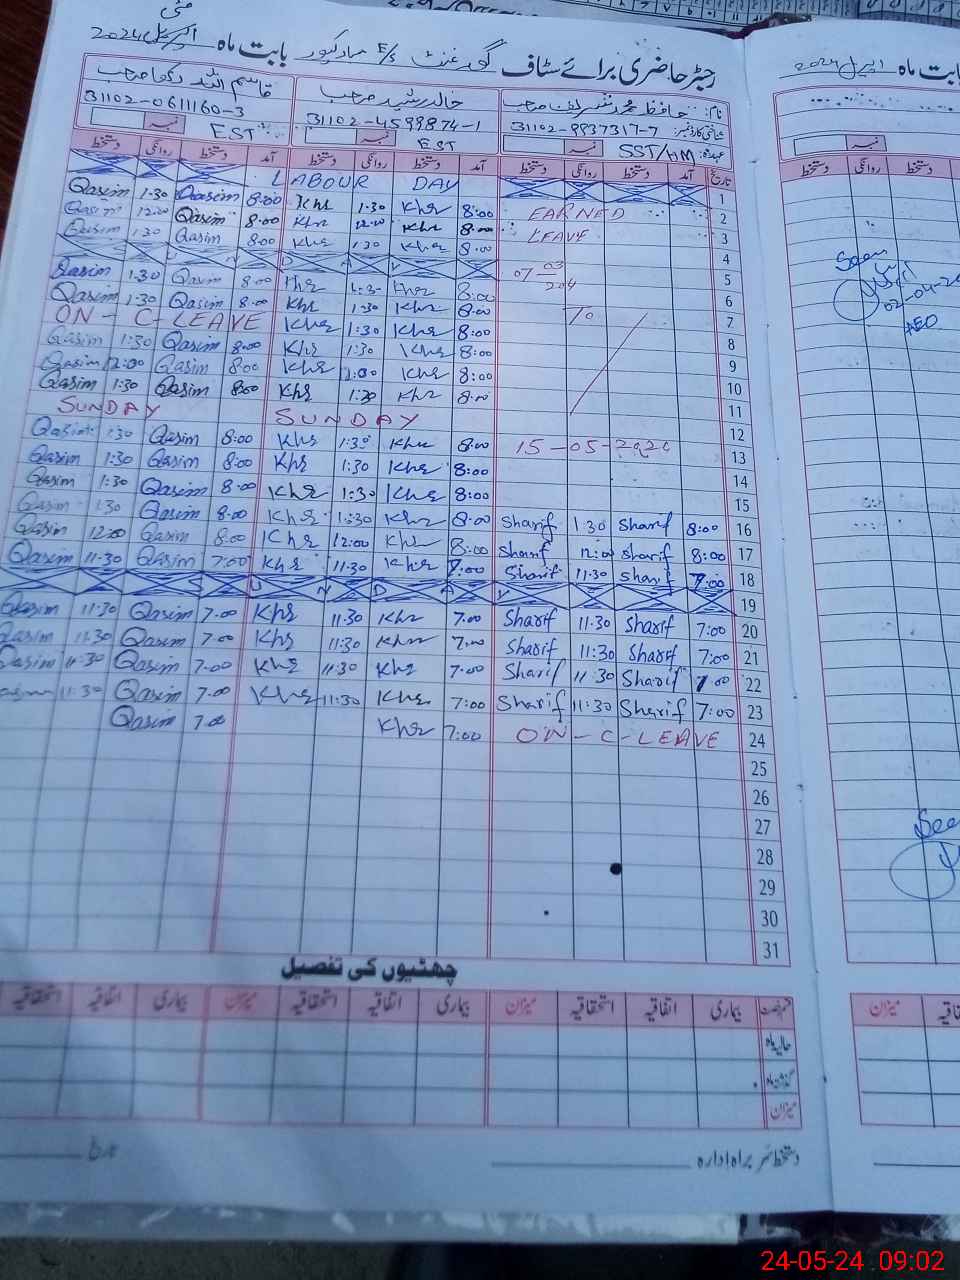 رجسٹر حاضری برائے سٹاف گورنمنٹ E/S صادق پور بابت ماہ مئی 2024
نام: حافظ محمد شریف صاحب خالد رشید صاحب قاسم اللہ رکھا صاحب
شناختی کارڈ نمبر: 31102-9937317-7 31102-4599874-1 31102-0611160-3
عہدہ: SST/HM EST EST
تاریخ آمد دستخط روانگی دستخط آمد دستخط روانگی دستخط آمد دستخط روانگی دستخط
LABOUR DAY 1
Qasim 1:30 Qasim 8:00 Khr 1:30 Khr 8:00 EARNED 2
Qasim 12:00 Qasim 8:00 Khr 12:00 Khr 8:00 LEAVE 3
Qasim 1:30 Qasim 8:00 Khr 1:30 Khr 8:00 4
S U N D A Y 07 03 204 5
Qasim 1:30 Qasim 8:00 Khr 1:30 Khr 8:00 6
Qasim 1:30 Qasim 8:00 Khr 1:30 Khr 8:00 To 7
ON-C-LEAVE Khr 1:30 Khr 8:00 8
Qasim 1:30 Qasim 8:00 Khr 1:30 Khr 8:00 9
Qasim 12:00 Qasim 8:00 Khr 12:00 Khr 8:00 10
Qasim 1:30 Qasim 8:00 Khr 1:30 Khr 8:00 11
SUNDAY SUNDAY 12
Qasim 1:30 Qasim 8:00 Khr 1:30 Khr 8:00 15-05-2024 13
Qasim 1:30 Qasim 8:00 Khr 1:30 Khr 8:00 14
Qasim 1:30 Qasim 8:00 Khr 1:30 Khr 8:00 15
Qasim 1:30 Qasim 8:00 Khr 1:30 Khr 8:00 Sharif 1:30 Sharif 8:00 16
Qasim 12:00 Qasim 8:00 Khr 12:00 Khr 8:00 Sharif 12:00 Sharif 8:00 17
Qasim 11:30 Qasim 7:00 Khr 11:30 Khr 7:00 Sharif 11:30 Sharif 7:00 18
S U N D A Y 19
Qasim 11:30 Qasim 7.00 Khr 11.30 Khr 7.00 Sharif 11.30 Sharif 7:00 20
Qasim 11.30 Qasim 7.00 Khr 11.30 Khr 7.00 Sharif 11:30 Sharif 7:00 21
Qasim 11:30 Qasim 7.00 Khr 11:30 Khr 7.00 Sharif 11:30 Sharif 7.00 22
Qasim 11:30 Qasim 7.00 Khr 11:30 Khr 7:00 Sharif 11:30 Sharif 7:00 23
Qasim 7.00 Khr 7:00 ON-C-LEAVE 24
25
26
27
28
29
30
31
چھٹیوں کی تفصیل
قسم رخصت بیماری اتفاقیہ استحقاقیہ میزان بیماری اتفاقیہ استحقاقیہ میزان بیماری اتفاقیہ استحقاقیہ
حالیہ ماہ
گذشتہ ماہ
میزان
دستخط سربراہ ادارہ تاریخ
بابت ماہ اپریل 2024
نمبر
دستخط روانگی دستخط
Seen
02-04-24
AEO
See
میزان
24-05-24 09:02